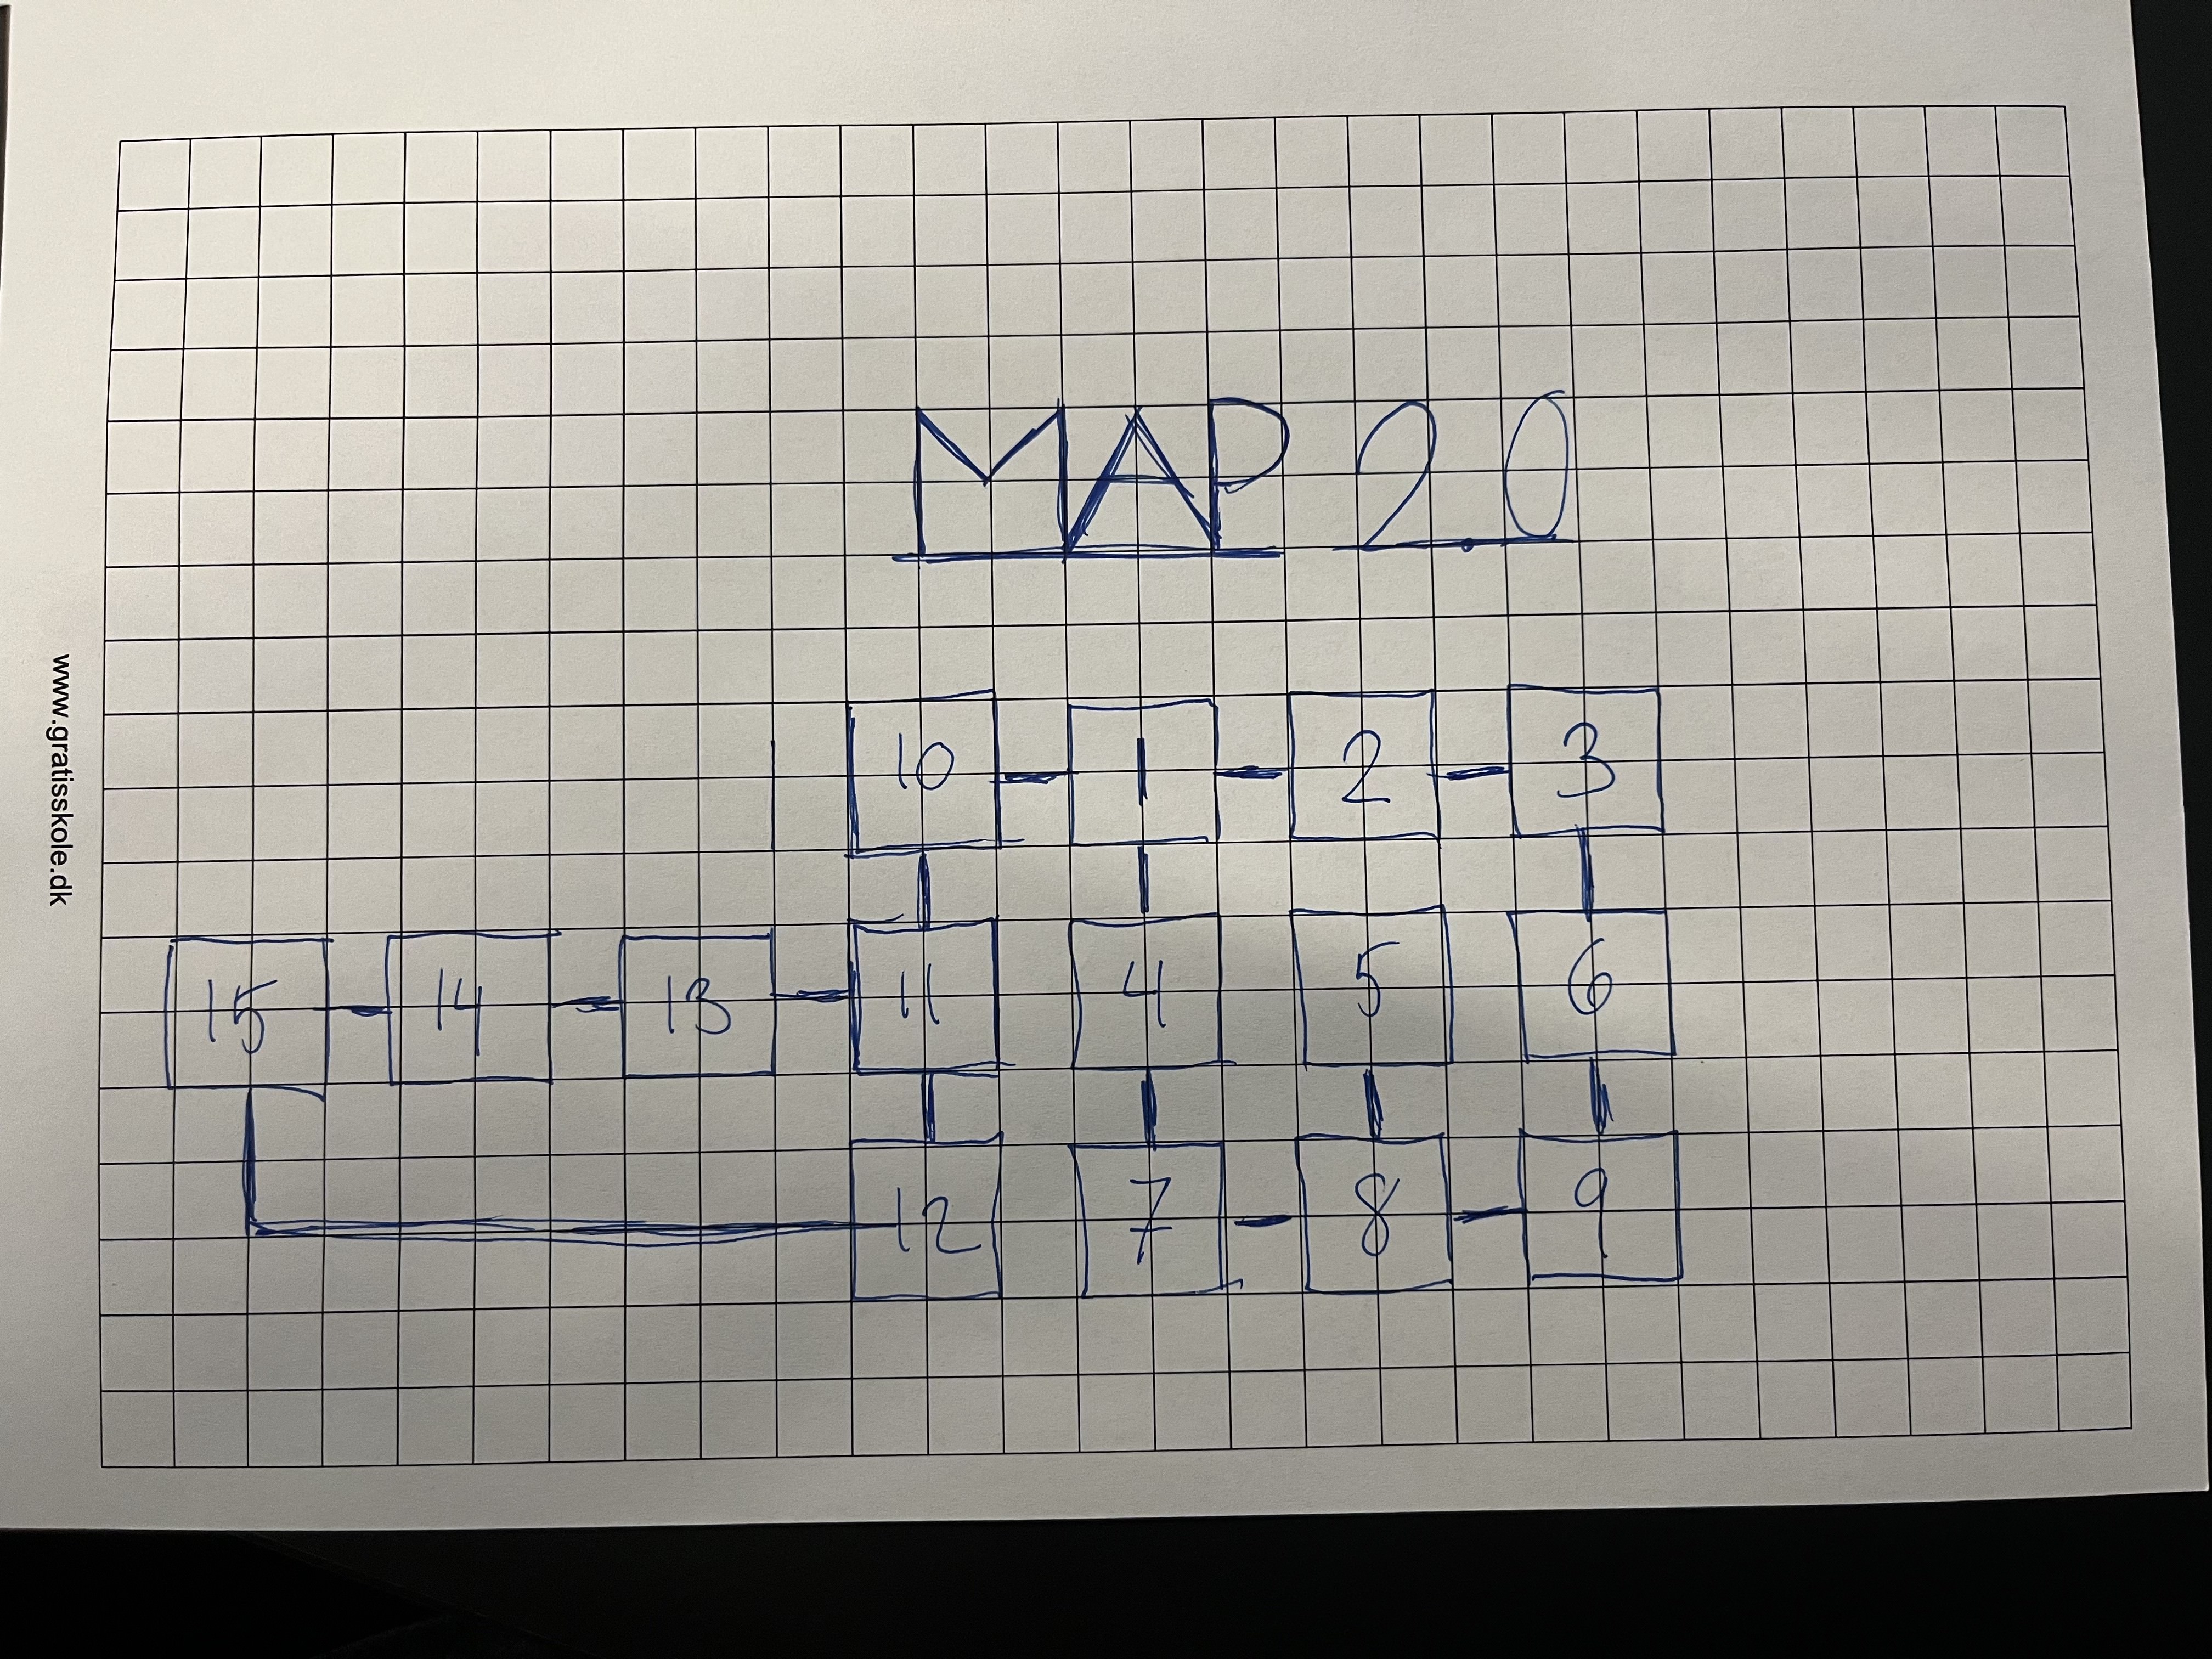 MAP 2.0
10 1 2 3
15 14 13 11 4 5 6
12 7 8 9
www.gratisskole.dk